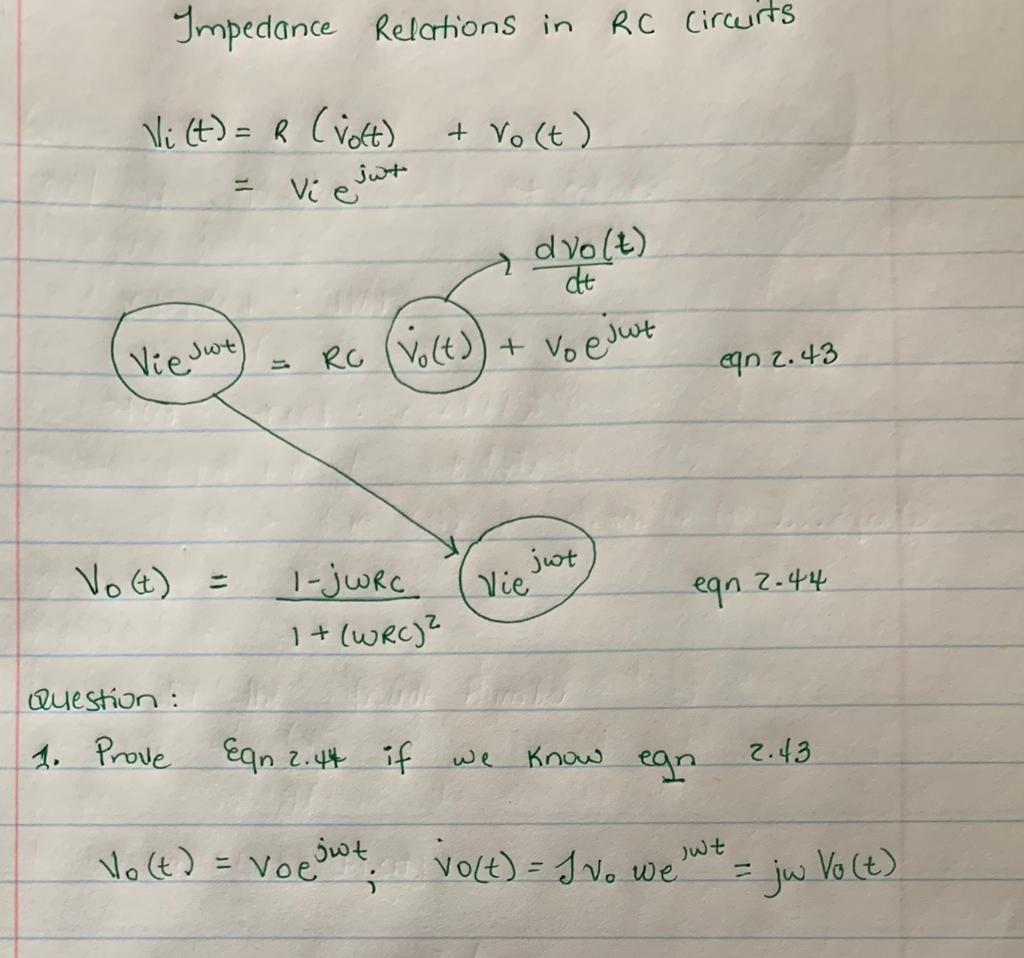 Impedance Relations in RC Circuits
Vi(t) = R (v̇o(t) + vo(t)
= Vi e^jwt
dvo(t)/dt
Vie^jwt = RC v̇o(t) + Voe^jwt eqn 2.43
Vo(t) = (1-jwRC)/(1+(wRC)^2) Vie^jwt eqn 2.44
Question:
1. Prove Eqn 2.44 if we know eqn 2.43
Vo(t) = Voe^jwt; v̇o(t) = Jvo we^jwt = jw Vo(t)